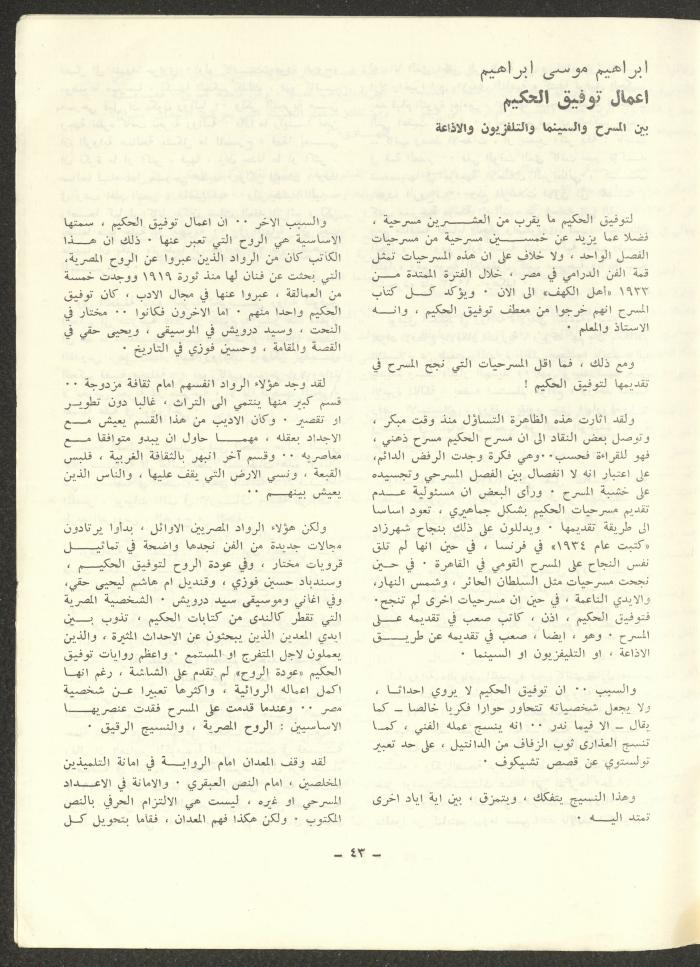 ابراهيم موسى ابراهيم
اعمال توفيق الحكيم
بين المسرح والسينما والتلفزيون والاذاعة
لتوفيق الحكيم ما يقرب من العشـــرين مسرحية ،
فضلا عما يزيد عن خمســـين مسرحية من مسرحيات
الفصل الواحد ، ولا خلاف على ان هذه المسرحيات تمثل
قمة الفن الدرامي في مصر ، خلال الفترة الممتدة مـــن
١٩٣٣ «أهل الكهف» الى الان ٠ ويؤكد كـــل كتاب
المسرح انهم خرجوا من معطف توفيق الحكيم ، وانـــه
الاستاذ والمعلم ٠
ومع ذلك ، فما اقل المسرحيات التي نجح المسرح في
تقديمها لتوفيق الحكيم !
ولقد اثارت هذه الظاهرة التساؤل منذ وقت مبكر ،
وتوصل بعض النقاد الى ان مسرح الحكيم مسرح ذهني ،
فهو للقراءة فحسب٠٠وهي فكرة وجدت الرفض الدائم،
على اعتبار انه لا انفصال بين الفصل المسرحي وتجسيده
على خشبة المسرح ٠ ورأى البعض ان مسئولية عـــدم
تقديم مسرحيات الحكيم بشكل جماهيري ، تعود اساسا
الى طريقة تقديمها ٠ ويدللون على ذلك بنجاح شهرزاد
«كتبت عام ١٩٣٤» في فرنسا ، في حين انها لم تلق
نفس النجاح على المسرح القومي في القاهرة ٠ في حـــين
نجحت مسرحيات مثل السلطان الحائر ، وشمس النهار،
والايدي الناعمة ، في حين ان مسرحيات اخرى لم تنجح٠
فتوفيق الحكيم ، اذن ، كاتب صعب في تقديمه علـــى
المسرح ٠ وهو ، ايضا ، صعب في تقديمه عن طريـــق
الاذاعة ، او التليفزيون او السينما ٠
والسبب ٠٠ ان توفيق الحكيم لا يروي احداثـا ،
ولا يجعل شخصياته تتحاور حوارا فكريا خالصا ــ كما
يقال ــ الا فيما ندر ٠٠ انه ينسج عمله الفني ، كمـا
تنسج العذارى ثوب الزفاف من الدانتيل ، على حد تعبير
تولستوي عن قصص تشيكوف ٠
وهذا النسيج يتفكك ، ويتمزق ، بين اية اياد اخرى
تمتد اليـــه ٠
والسبب الاخر ٠٠ ان اعمال توفيق الحكيم ، سمتها
الاساسية هي الروح التي تعبر عنها ٠ ذلك ان هـــذا
الكاتب كان من الرواد الذين عبروا عن الروح المصرية،
التي بحثت عن فنان لها منذ ثورة ١٩١٩ ووجدت خمسة
من العمالقة ، عبروا عنها في مجال الادب ، كان توفيق
الحكيم واحدا منهم ٠ اما الاخرون فكانوا ٠٠ مختار في
النحت ، وسيد درويش في الموسيقى ، ويحيى حقي في
القصة والمقامة ، وحسين فوزي في التاريخ ٠
لقد وجد هؤلاء الرواد انفسهم امام ثقافة مزدوجة ٠٠
قسم كبير منها ينتمي الى التراث ، غالبا دون تطويـــر
او تقصير ٠ وكان الاديب من هذا القسم يعيش مـــع
الاجداد بعقله ، مهمـــا حاول ان يبدو متوافقا مـــع
معاصريه ٠٠ وقسم آخر انبهر بالثقافة الغربية ، فلبس
القبعة ، ونسي الارض التي يقف عليها ، والناس الذين
يعيش بينهـــم ٠٠
ولكن هؤلاء الرواد المصريين الاوائل ، بدأوا يرتادون
مجالات جديدة من الفن نجدها واضحة في تماثيـــل
قرويات مختار ، وفي عودة الروح لتوفيق الحكيـــم ،
وسندباد حسين فوزي ، وقنديل ام هاشم ليحيى حقي،
وفي اغاني وموسيقى سيد درويش ٠ الشخصية المصرية
التي تقطر كالندى من كتابات الحكيم ، تذوب بـــين
ايدي المعدين الذين يبحثون عن الاحداث المثيرة ، والذين
يعملون لاجل المتفرج او المستمع ٠ واعظم روايات توفيق
الحكيم «عودة الروح» لم تقدم على الشاشة ، رغم انهـا
اكمل اعماله الروائية ، واكثرها تعبيرا عـــن شخصية
مصر ٠٠ وعندما قدمت على المسرح فقدت عنصريهـــا
الاساسيين : الروح المصرية ، والنسيج الرقيق ٠
لقد وقف المعدان امام الروايـــة في امانة التلميذين
المخلصين ، امام النص العبقري ٠ والامانة في الاعـــداد
المسرحي او غيره ، ليست هي الالتزام الحرفي بالنص
المكتوب ٠ ولكن هكذا فهم المعدان ، فقاما بتحويل كـــل
ــ ٤٣ ــ